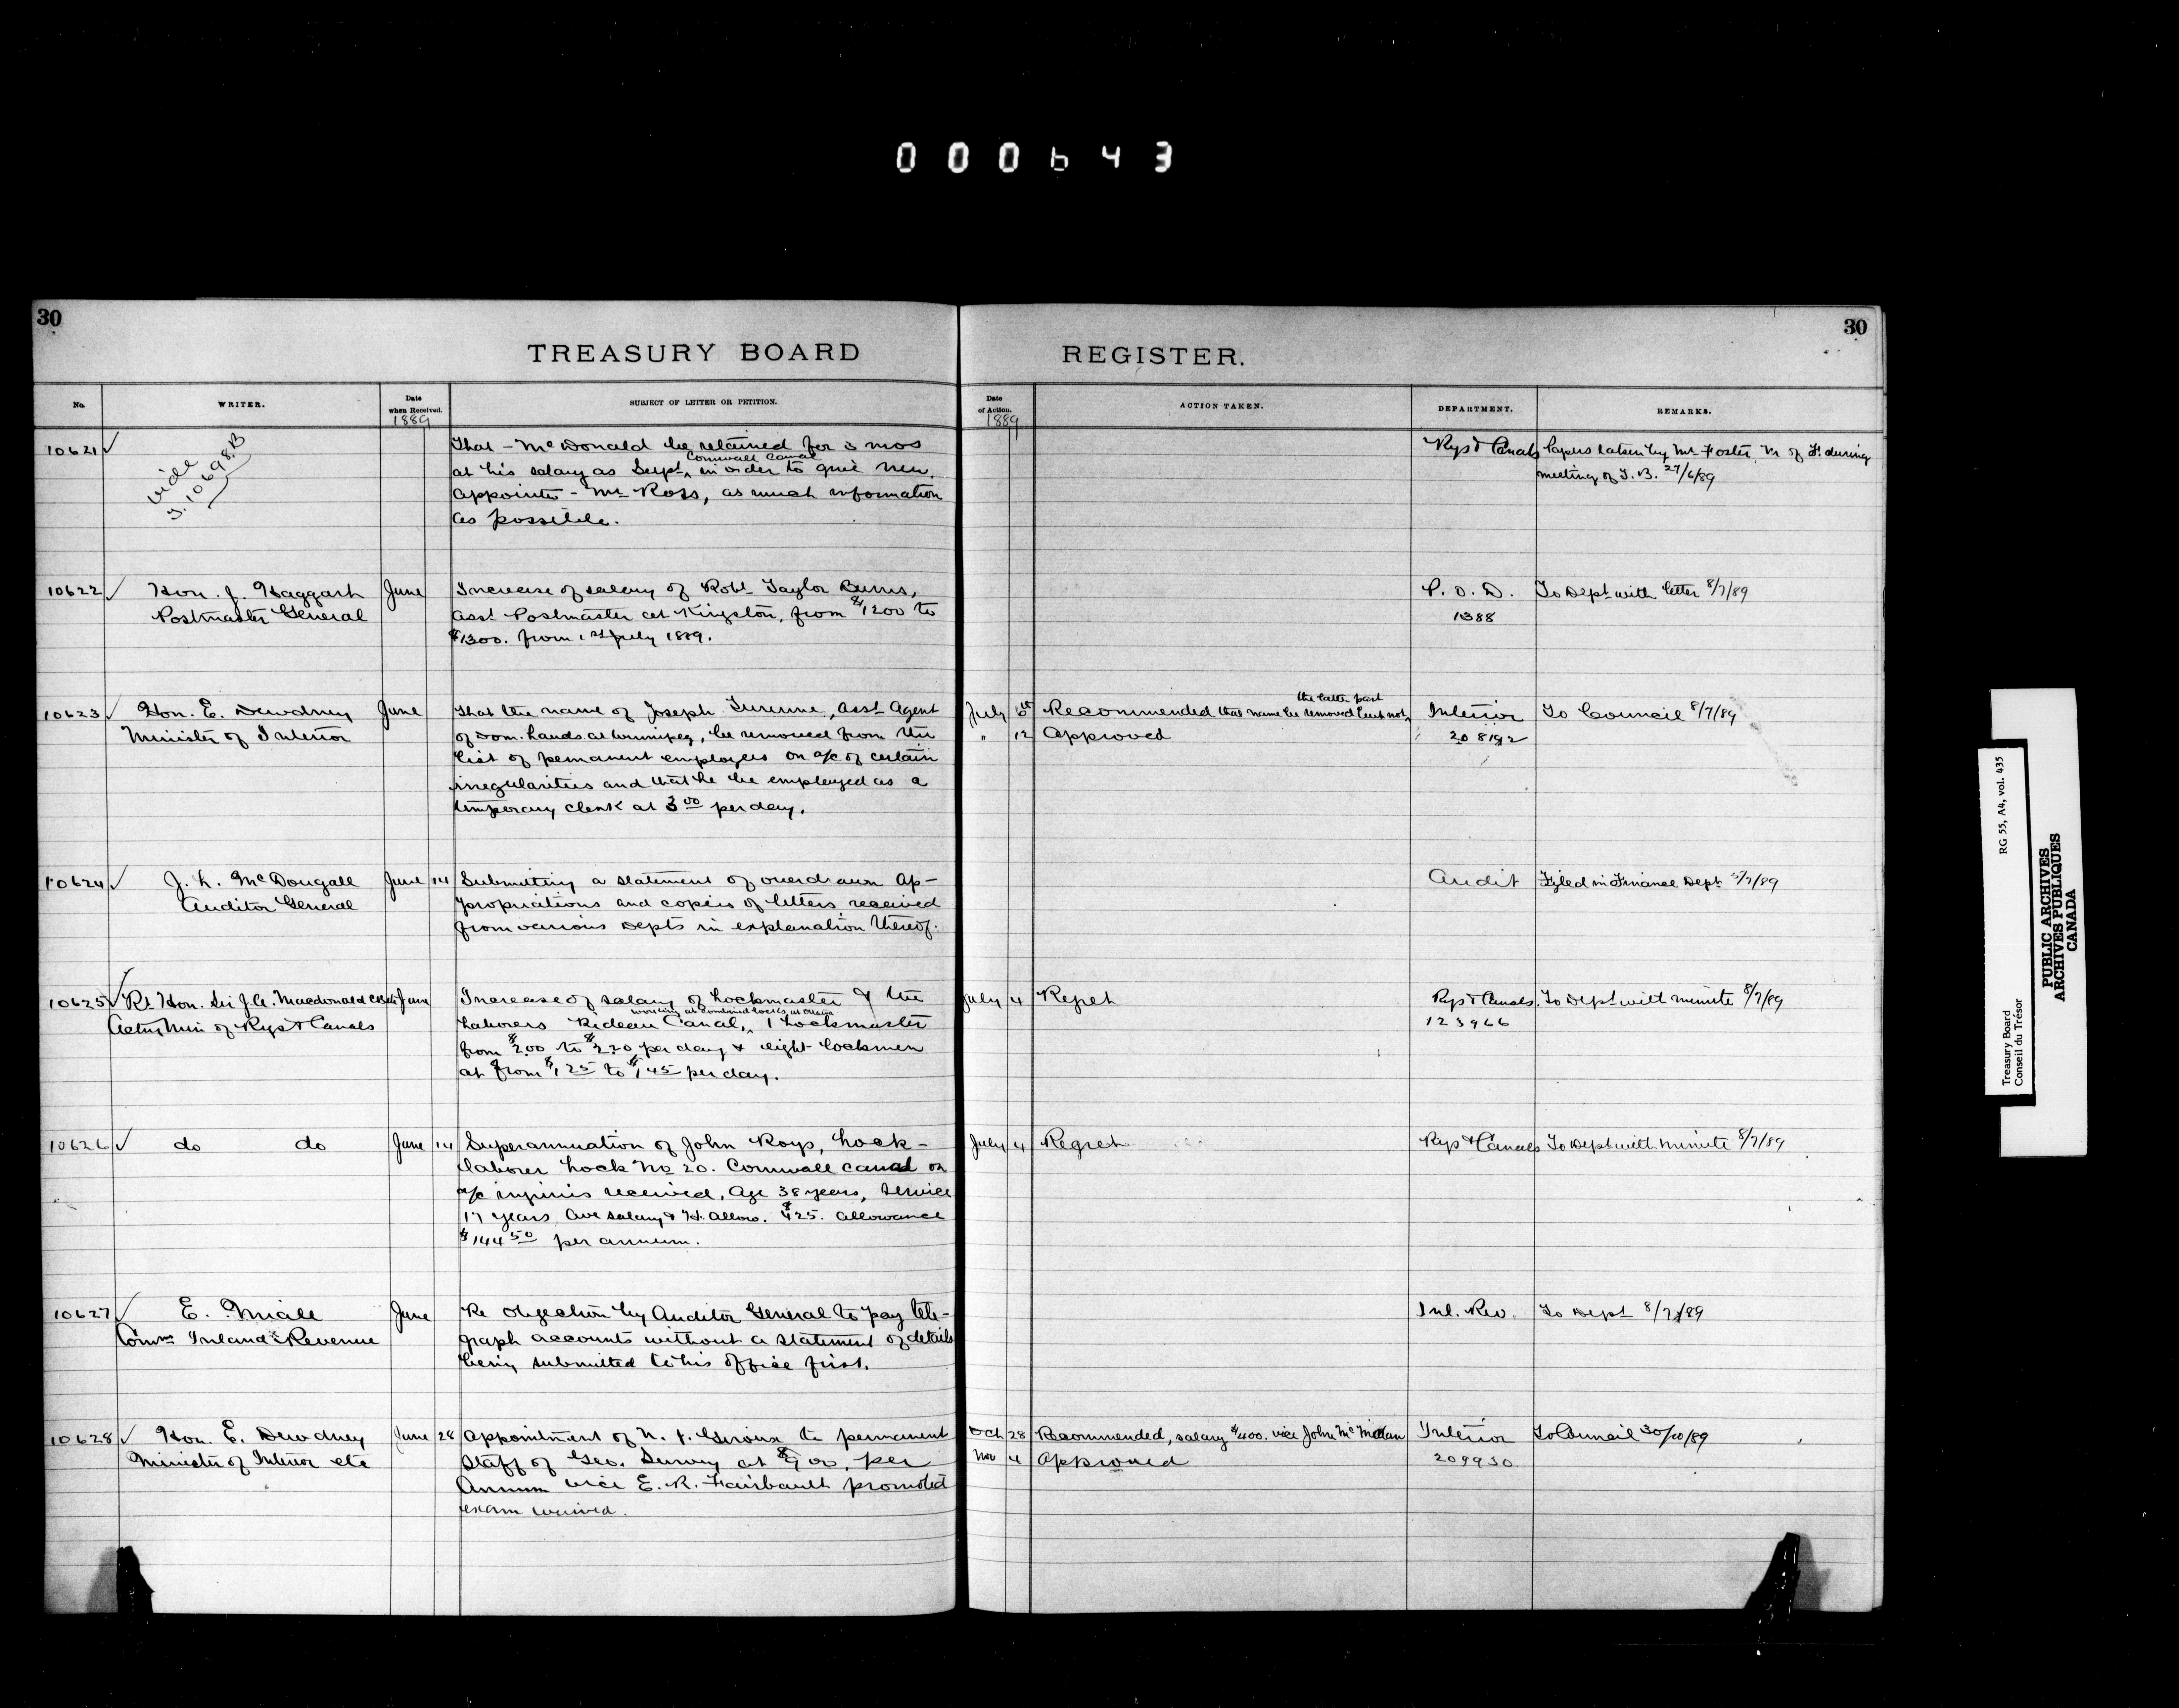 000643
30
30
TREASURY BOARD
REGISTER.
No.
WRITER.
Date when Received.
1889
SUBJECT OF LETTER OR PETITION.
Date of Action.
1889
ACTION TAKEN.
DEPARTMENT.
REMARKS.
10621 ✓
Vide
10698.B
That – McDonald be retained for 3 mos
at his salary as Supt ^ Cornwall Canal in order to give new
appointee – Mr Ross, as much information
as possible.
Rys & Canals
Papers taken by Mr Foster, M of F. during
meeting of T.B. 27/6/89
10622 ✓
Hon. J. Haggart
Postmaster General
June
Increase of salary of Robt Taylor Burns,
asst Postmaster at Kingston, from $1200 to
$1300. from 1st July 1889.
P.O.D.
1388
To Dept with letter 8/7/89
10623 ✓
Hon. E. Dewdney
Minister of Interior
June
That the name of Joseph Turenne, asst Agent
of Dom. Lands at Winnipeg, be removed from the
list of permanent employees on a/c of certain
irregularities and that he be employed as a
temporary clerk at 3 00 per day.
July
Recommended that name be removed but not ^ the latter part
" 12 Approved
Interior
208192
To Council 8/7/89
10624 ✓
J. L. McDougall
Auditor General
June 14
Submitting a statement of overdrawn Ap-
propriations and copies of letters received
from various Depts in explanation thereof.
Audit
Fyled in Finance Dept /7/89
10625 ✓
Rt Hon. Sir J. A. Macdonald
Actg Min of Rys & Canals
June
Increase of salary of Lockmaster & the
Laborers Rideau Canal, ^ working at Combined Locks at Ottawa 1 Lockmaster
from $2.00 to $2.20 per day & eight Lockmen
at from $1 25 to $1 45 per day.
July 4
Regret
Rys & Canals.
123966
To Dept with minute 8/7/89
10626 ✓
do do
June 14
Superannuation of John Roys, Lock-
laborer Lock No 20. Cornwall canal on
a/c injuries received, Age 38 years, Service
17 years Ave salary & H. Allow. $425. allowance
$144 50 per annum.
July 4
Regret
Rys & Canals
To Dept with minute 8/7/89
10627 ✓
E. Miall
Commr Inland Revenue
June
Re objection by Auditor General to pay tele-
graph accounts without a statement of details
being submitted to his office first.
Inl. Rev.
To Dept 8/7/89
10628 ✓
Hon. E. Dewdney
Minister of Interior etc
June 28
Appointment of N. J. Giroux to permanent
Staff of Geo. Survey at per
Annum vice E. R. Fairbault promoted
exam waived.
Oct 28
Recommended, salary $400. vice John McMillan
Nov 4
Approved
Interior
209930
To Council 30/10/89
Treasury Board
Conseil du Trésor
RG 55, A4, vol. 435
PUBLIC ARCHIVES
ARCHIVES PUBLIQUES
CANADA